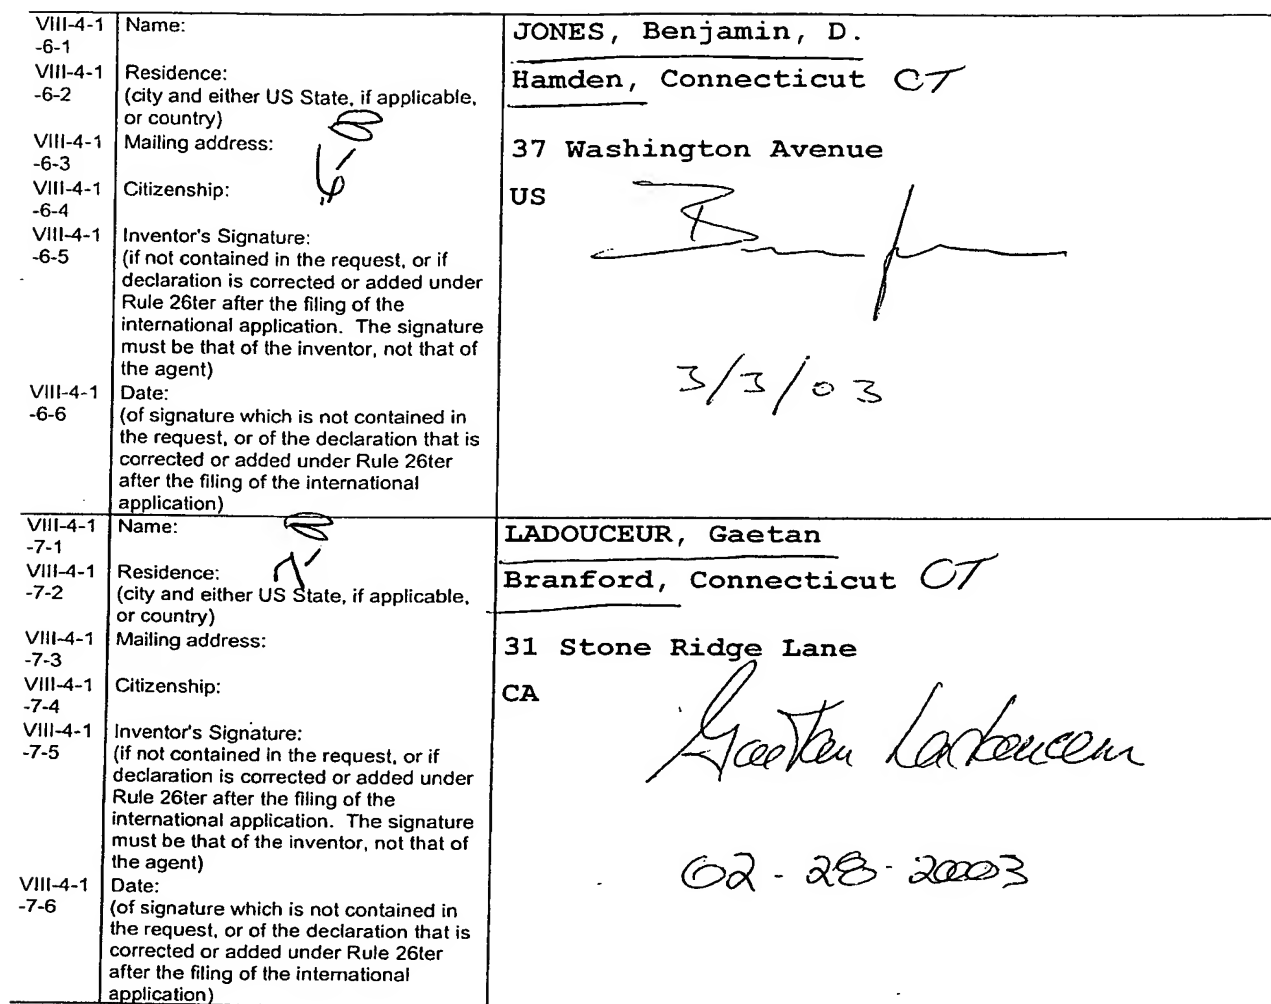 VIII-4-1 Name: JONES, Benjamin, D.
-6-1
VIII-4-1 Residence: Hamden, Connecticut CT
-6-2 (city and either US State, if applicable,
or country)
VIII-4-1 Mailing address: 37 Washington Avenue
-6-3
VIII-4-1 Citizenship: US
-6-4
VIII-4-1 Inventor's Signature:
-6-5 (if not contained in the request, or if
declaration is corrected or added under
Rule 26ter after the filing of the
international application. The signature
must be that of the inventor, not that of
the agent)
VIII-4-1 Date: 3/3/03
-6-6 (of signature which is not contained in
the request, or of the declaration that is
corrected or added under Rule 26ter
after the filing of the international
application)
VIII-4-1 Name: LADOUCEUR, Gaetan
-7-1
VIII-4-1 Residence: Branford, Connecticut CT
-7-2 (city and either US State, if applicable,
or country)
VIII-4-1 Mailing address: 31 Stone Ridge Lane
-7-3
VIII-4-1 Citizenship: CA
-7-4
VIII-4-1 Inventor's Signature: Gaetan Ladouceur
-7-5 (if not contained in the request, or if
declaration is corrected or added under
Rule 26ter after the filing of the
international application. The signature
must be that of the inventor, not that of
the agent)
VIII-4-1 Date: 02-28-2003
-7-6 (of signature which is not contained in
the request, or of the declaration that is
corrected or added under Rule 26ter
after the filing of the international
application)